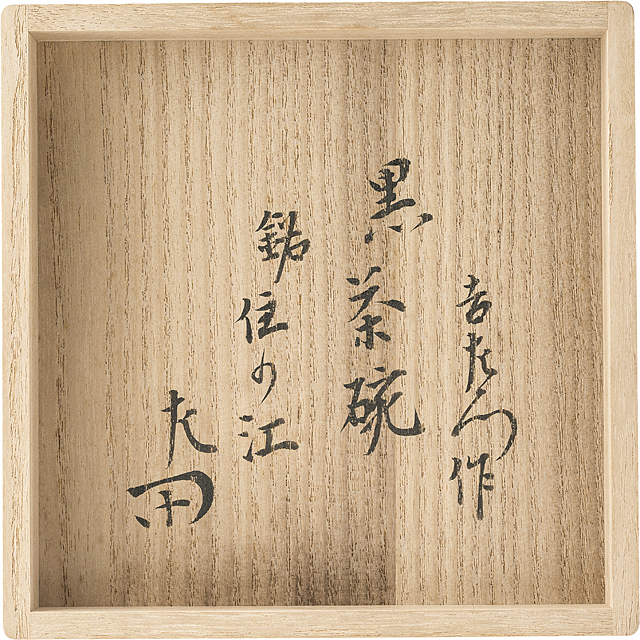 吉左衛門作
黒茶碗
銘住の江
左